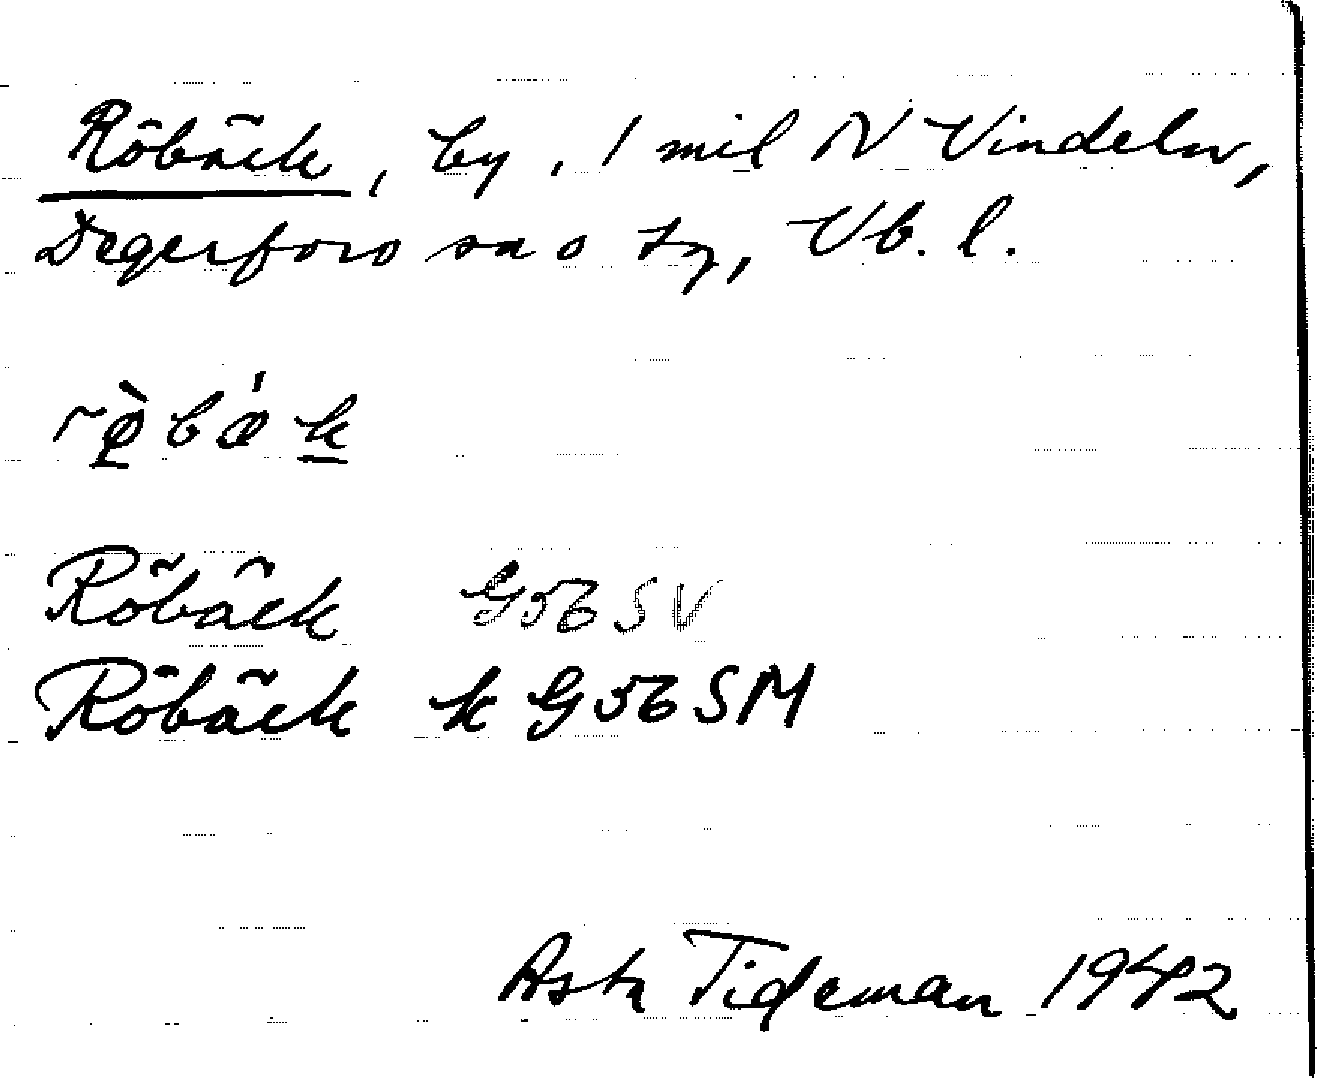 Röbäck, by, 1 mil N Vindeln,
Degerfors sns tg, Vb. l.
Röbäck G56SV
Röbäck k G56SM
Asta Tideman 1942